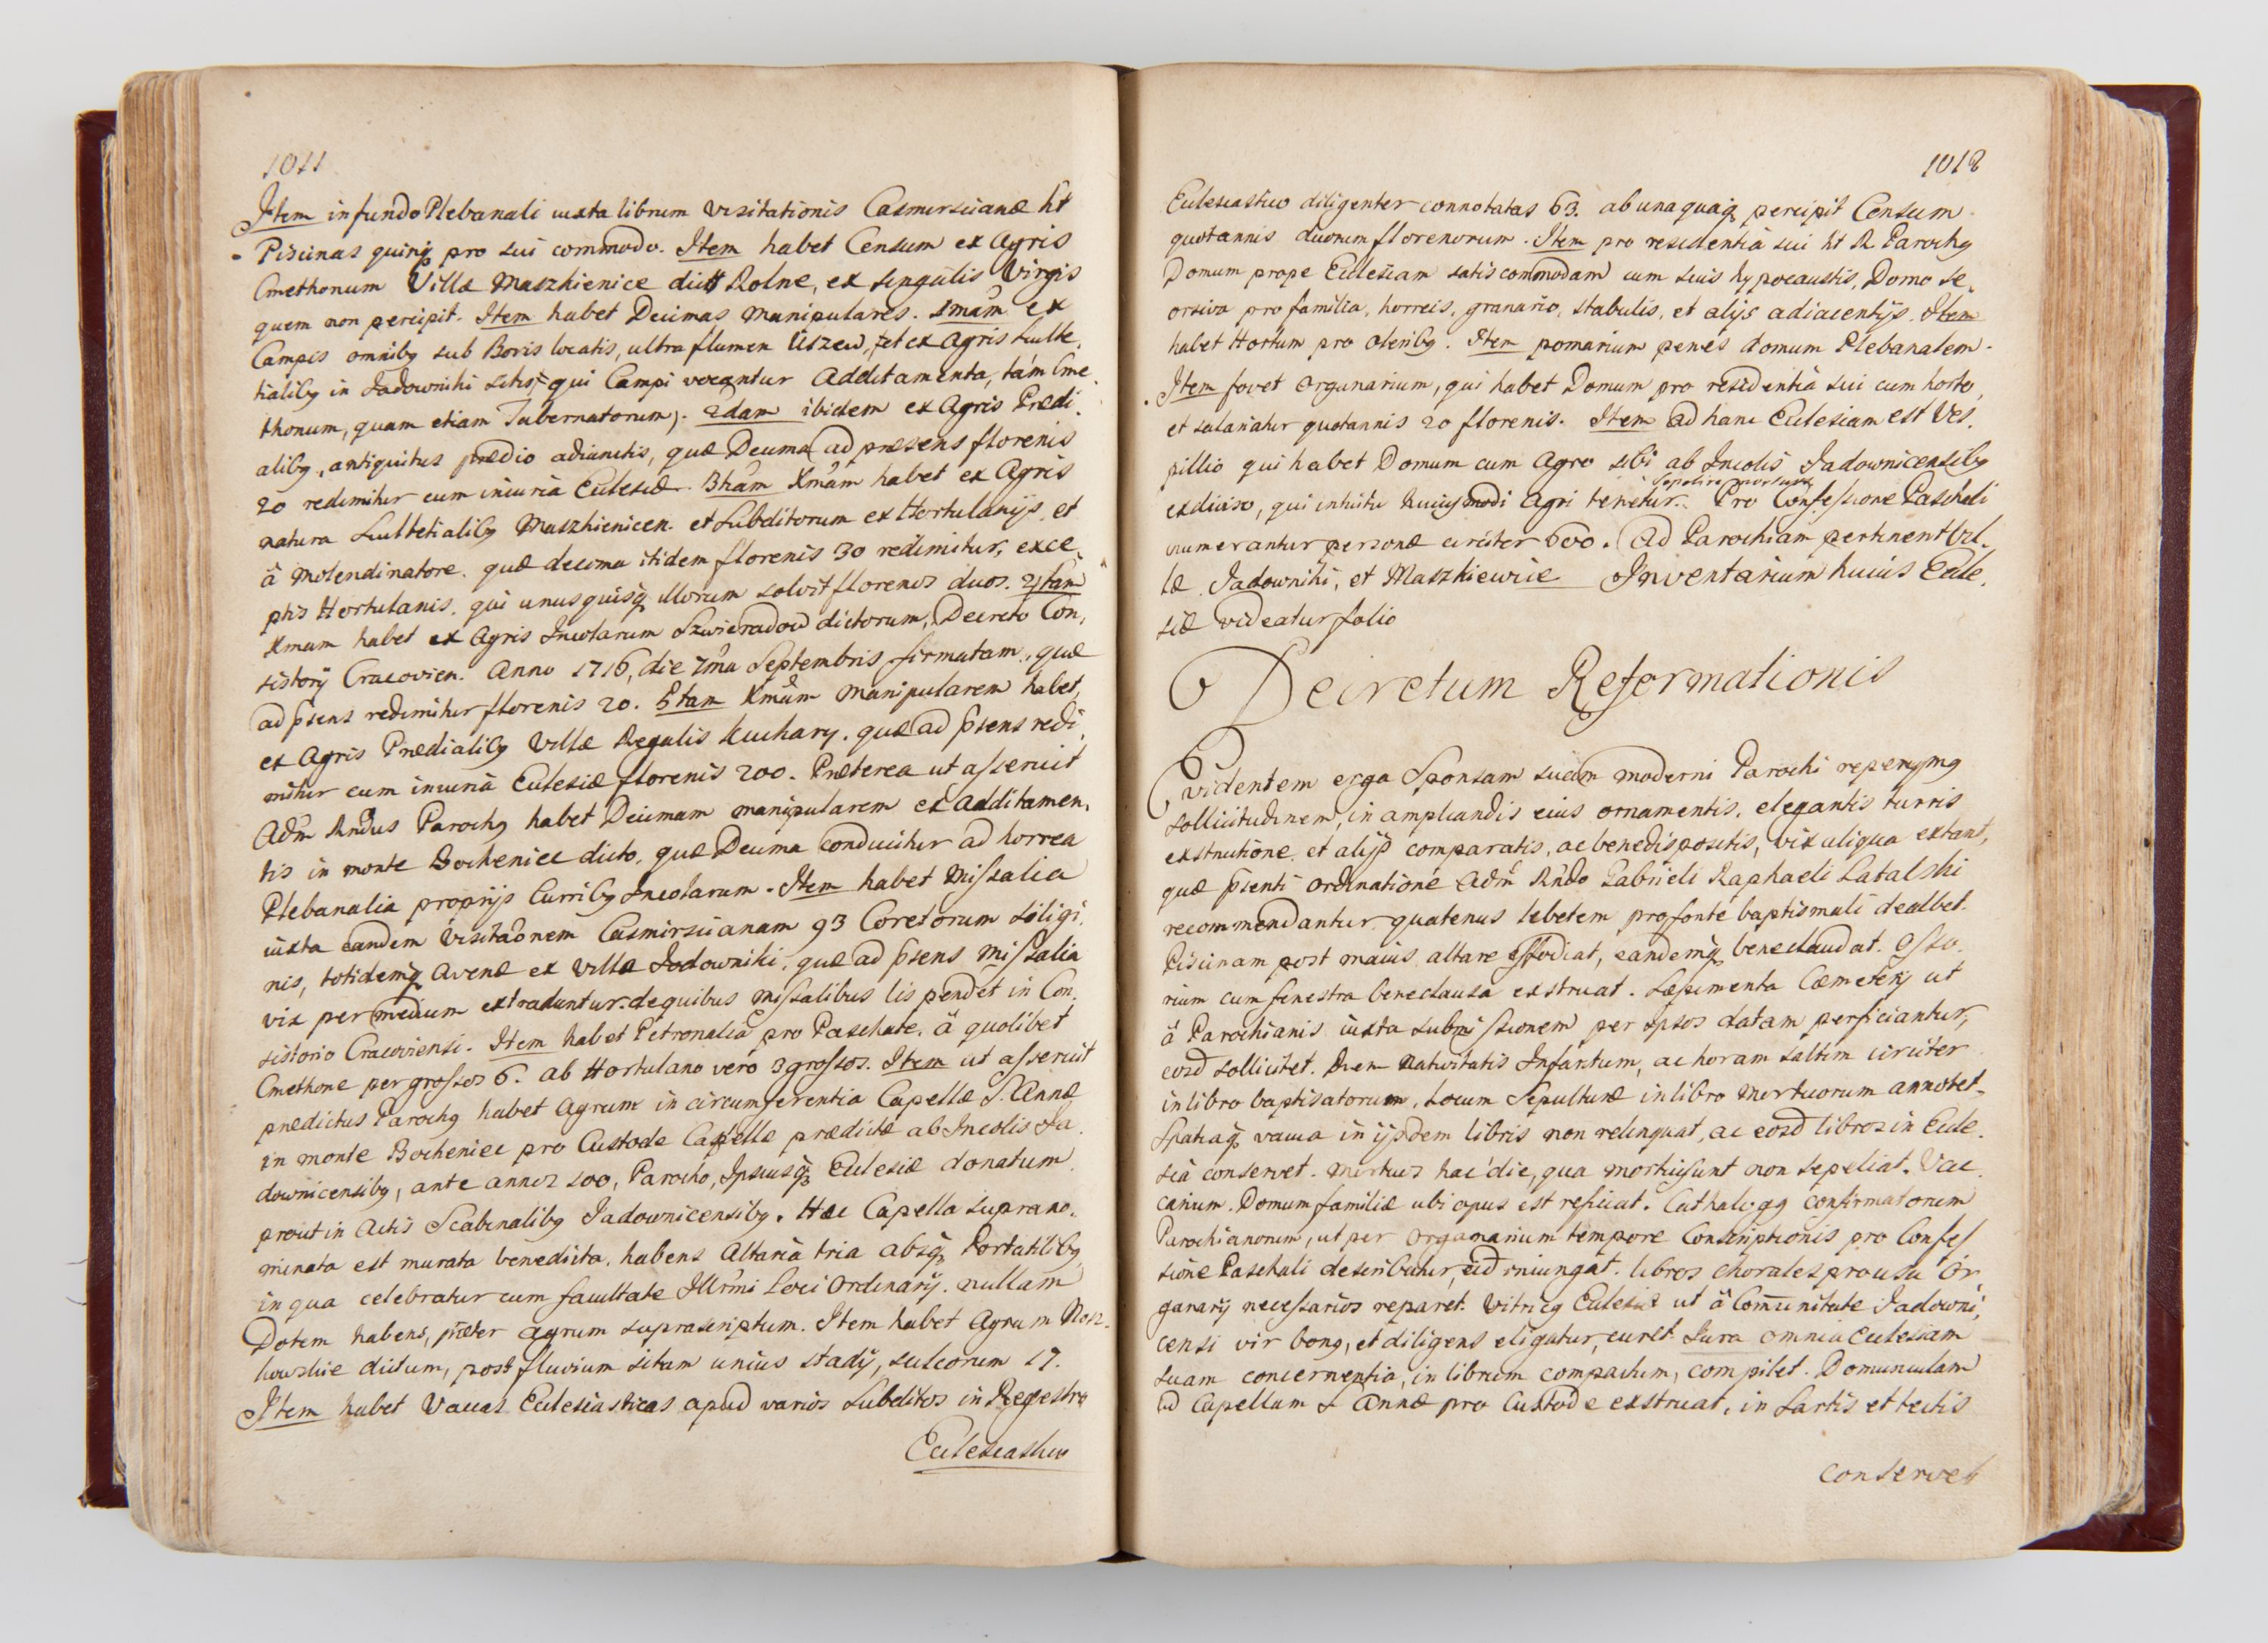 1011
Item in fundo Plebanali iuxta librum visitationis Casimirscianæ ht
Piscinas quinq; pro sui commodo. Item habet Censum ex Agris
Cmethonum Villæ Maszkienice dict Rolne, ex singulis Virgis
quem non percipit. Item habet Decimas manipulares. 1mam ex
Campis omnibg sub Boris locatis, ultra flumen Uszew, et ex Agris Sculte,
tialibg in Jadowniki sitis, qui Campi vocantur Additamenta, tám Cme,
thonum, quam etiam Tabernatorum. 2dam ibidem ex Agris Prædi,
alibg, antiquitus prædio adiunctis, quæ Decima ad præsens florenis
20 redimitur cum iniuria Ecclesiæ. 3tiam Xmam habet ex Agris
natura Scultetialibg Maszkienicen. et Subditorum ex Hortulanijs, et
â Molendinatore. quæ decima itidem florenis 30 redimitur, exce,
ptis Hortulanis. qui unusquisq; illorum solvit florenos duos. 4tam
Xmam habet ex Agris Incolarum Szwieradow dictorum, Decreto Con,
sistorij Cracovien. Anno 1716, die 7ma Septembris firmatam, quæ
ad psens redimitur florenis 20. 5tam Xmam manipularem habet,
ex Agris Prædialibg Villæ Regalis Kuchary. quæ ad psens redi,
mitur cum iniuriâ Ecclesiæ florenis 200. Præterea ut asseruit
Adm Rndus Parochg habet Decimam manipularem ex Additamen,
tis in monte Bocheniec dicto, quæ Decima conducitur ad horrea
Plebanalia proprijs Curribg Incolarum. Item habet Missalia
iuxta eandem Visitaonem Casimirscianam 93 Coretorum siligi,
nis, totidemq; Avenæ ex Villa Jadowniki, quæ ad psens Missalia
vix per medium extraduntur. de quibus Missalibus lis pendet in Con,
sistorio Cracoviensi. Item habet Petronalia pro Paschate, â quolibet
Cmethone per grossos 6. ab Hortulano vero 3 grossos. Item ut asseruit
prædictus Parochg habet Agrum in circumferentia Capellæ S. Annæ
in monte Bocheniec pro Custode Capellæ prædictæ ab Incolis Ja,
downicensibg, ante annos 100, Parocho, Ipsiusq; Ecclesiæ donatum.
prout in Actis Scabinalibg Jadownicensibg. Hæc Capella suprano,
minata est murata benedicta. habens Altaria tria absq; Portatilibg,
in qua celebratur cum facultate Illrmi Loci Ordinarij. nullam
Dotem habens, præter agrum suprascriptum. Item habet Agrum
dictum, post fluvium sitam unius stadij, sulcorum 17.
Item habet Vaccas Ecclesiasticas apud varios Subditos in Regestro
Ecclesiastico
1012
Ecclesiastico diligenter connotatas 63. ab unaquaq; percipit Censum
quotannis duorum florenorum. Item pro residentiâ sui ht R Parochg
Domum prope Ecclesiam satis commodam cum suis hypocaustis, Domo se,
orsiva pro familia, horreis, granario, stabulis, et alijs adiacentijs. Item
habet Hortum pro oleribg. Item pomarium penes domum Plebanalem.
Item fovet Organarium, qui habet Domum pro residentiâ sui cum horto,
et salariatur quotannis 20 florenis. Item ad hanc Ecclesiam est Ves,
pillio qui habet Domum cum Agro sibi ab Incolis Jadownicensibg
sepelire mortuos
exdiviso, qui intuitu huiusmodi Agri tenetur. Pro Confessione Paschali
numerantur personæ circiter 600. Ad Parochiam pertinent Vil,
læ Jadowniki, et Maszkiewice Inventarium huius Eccle,
siæ videatur folio
Decretum Reformationis
Evidentem erga Sponsam suam moderni Parochi reperimg
sollicitudinem, in ampliandis eius ornamentis, elegantis turris
exstructione, et alijs comparatis, ac bene dispositis, vix aliqua extant,
quæ psenti ordinatione Adm Rndo Gabrieli Raphaeli Latalski
recommendantur. quatenus lebetem pro fonte baptismali dealbet.
Piscinam post maius altare effodiat, eandemq; bene claudat. Ossu,
rium cum fenestra bene clausa exstruat. Sæpimenta Cæmeterij ut
â Parochianis iuxta submissionem per ipsos datam perficiantur,
eosd sollicitet. Diem Nativitatis Infantum, ac horam saltim circiter
in libro baptisatorum, Locum Sepulturæ in libro Mortuorum annotet.
Spatiaq; vacua in ijsdem libris non relinquat, ac eosd libros in Eccle,
siâ conservet. Mortuos hac die, qua mortui sunt non sepeliat. Vac,
carium. Domum familiæ ubi opus est reficiat. Cathalogg confirmatorum
Parochianorum, ut per Organarium tempore Conscriptionis pro Confes
sione Paschali describatur, eid iniungat. libros chorales pro usu Or,
ganarij necessarios reparet. Vitricg Ecclesiæ ut â Comunitate Jadowni,
censi vir bong, et diligens eligatur, curet. Jura omnia Ecclesiam
suam concernentia, in librum compactum, compilet. Domunculam
ad Capellam S Annæ pro Custode exstruat, in sartis et tectis
conservet